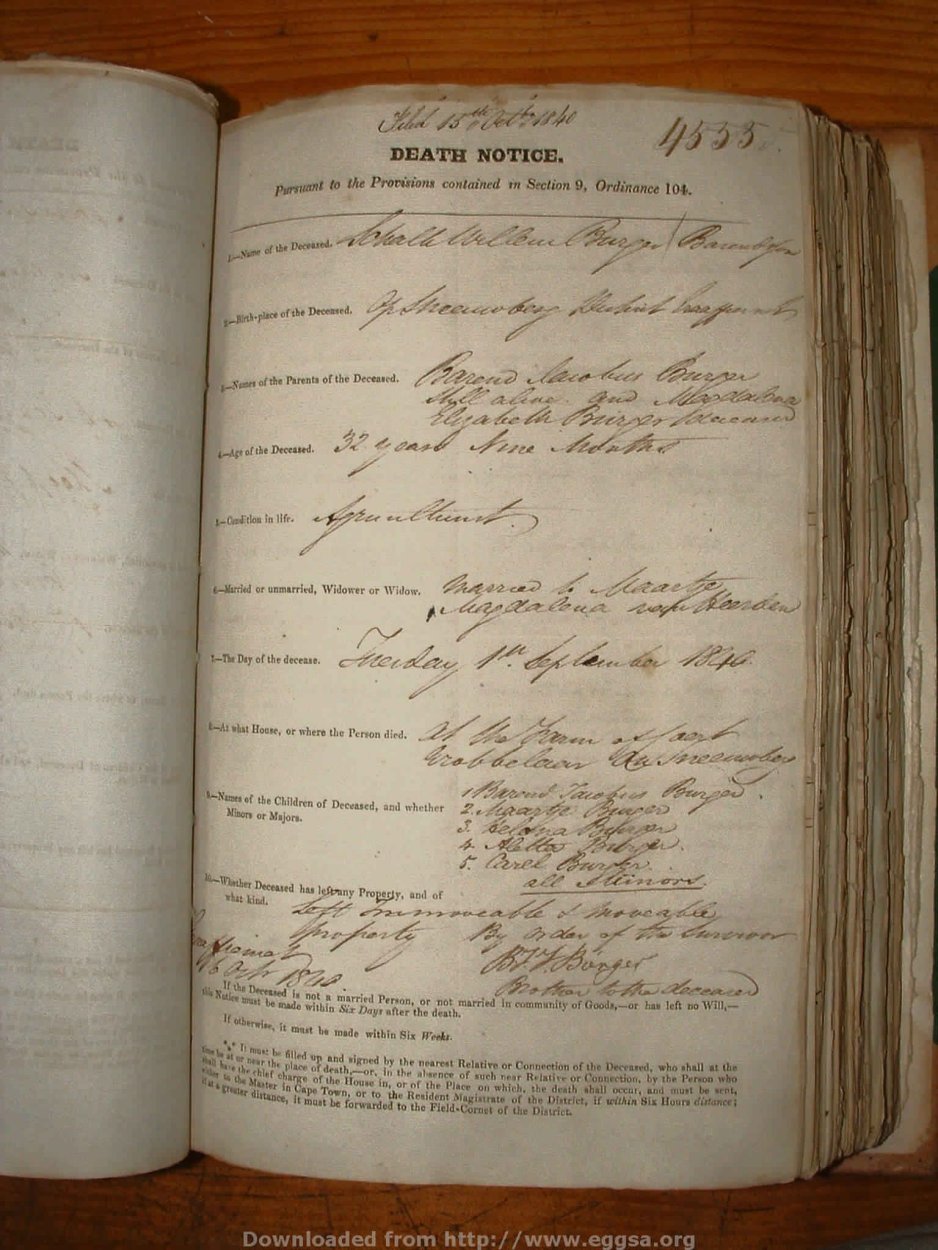 Filed 15th Octr 1840
4555
DEATH NOTICE.
Pursuant to the Provisions contained in Section 9, Ordinance 104.
1.—Name of the Deceased. Schalk Willem Burger Barendzn
2—Birth-place of the Deceased. Op Sneeuwberg District Graaffreinet
3—Names of the Parents of the Deceased. Barend Jacobus Burger
still alive and Magdalena
Elizabeth Burger deceased
4.—Age of the Deceased. 32 years Nine Months
5.—Condition in life. Agriculturist.
6—Married or unmarried, Widower or Widow. Married to Maartje
Magdalena van Heerden
7.—The Day of the decease. Tuesday 1st September 1840.
8—At what House, or where the Person died. At the Farm of
Grobbelaar Sneeuwberg
9.—Names of the Children of Deceased, and whether Minors or Majors.
1 Barend Jacobus Burger.
2. Maartje Burger
3. Helena Burger
4. Aletta Burger.
5. Carel Burger.
all Minors.
10.—Whether Deceased has left any Property, and of what kind.
Left Immoveable & Moveable
property By order of the Survivor
Graaffreinet
16 Octr 1840. Burger
Brother to the deceased
If the Deceased is not a married Person, or not married in community of Goods,—or has left no Will,—
this Notice must be made within Six Days after the death.
If otherwise, it must be made within Six Weeks.
*** It must be filled up and signed by the nearest Relative or Connection of the Deceased, who shall at the
time be at or near the place of death,—or, in the absence of such near Relative or Connection, by the Person who
shall have the chief charge of the House in, or of the Place on which, the death shall occur, and must be sent,
either to the Master in Cape Town, or to the Resident Magistrate of the District, if within Six Hours distance;
if at a greater distance, it must be forwarded to the Field-Cornet of the District.
Downloaded from http://www.eggsa.org